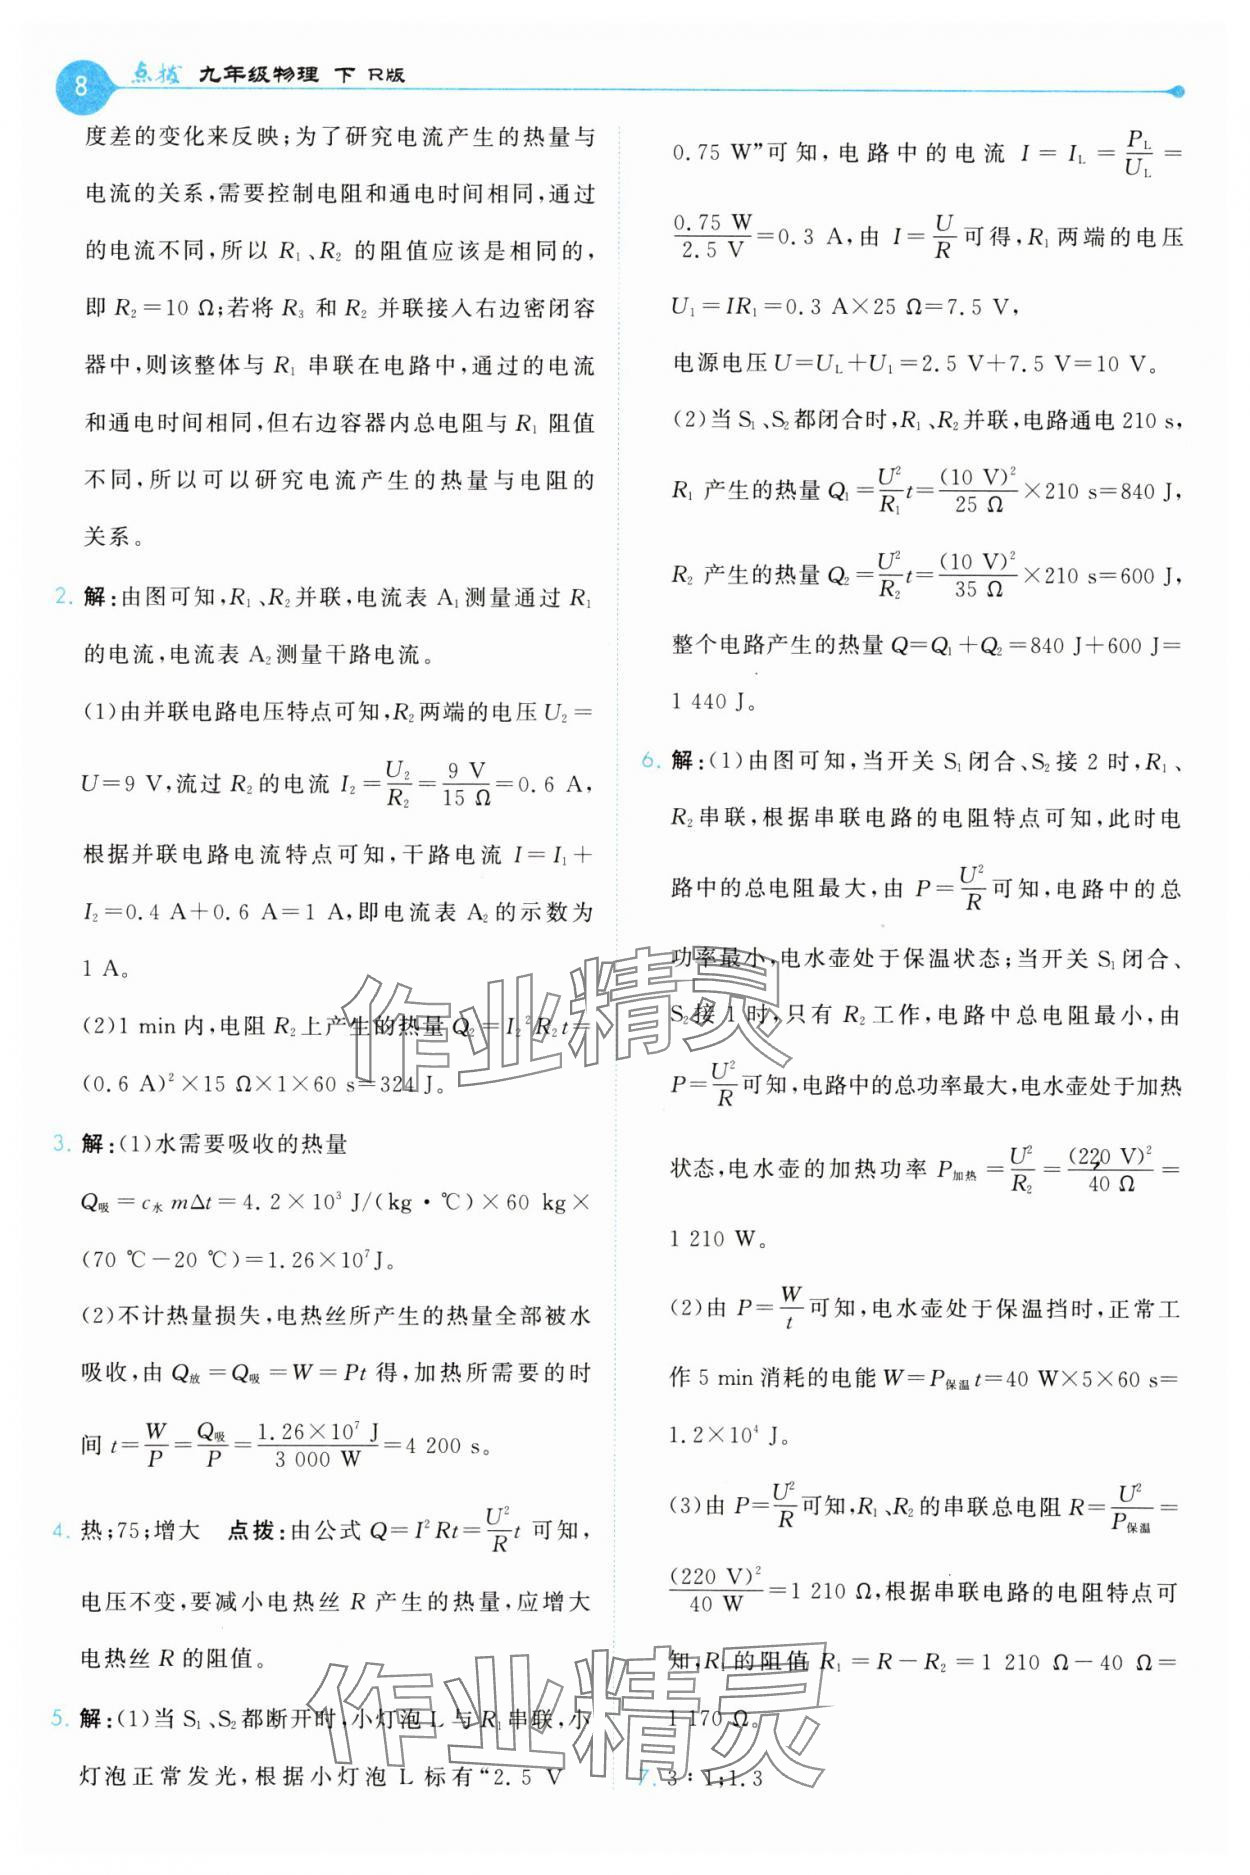 8 点拨 九年级物理 下 R版
度差的变化来反映;为了研究电流产生的热量与
电流的关系,需要控制电阻和通电时间相同,通过
的电流不同,所以 R₁、R₂ 的阻值应该是相同的,
即 R₂=10 Ω;若将 R₃ 和 R₂ 并联接入右边密闭容
器中,则该整体与 R₁ 串联在电路中,通过的电流
和通电时间相同,但右边容器内总电阻与 R₁ 阻值
不同,所以可以研究电流产生的热量与电阻的
关系。
2. 解:由图可知,R₁、R₂并联,电流表 A₁测量通过 R₁
的电流,电流表 A₂测量干路电流。
(1)由并联电路电压特点可知,R₂两端的电压 U₂=
U=9 V,流过 R₂的电流 I₂=U₂/R₂=9 V/15 Ω=0.6 A,
根据并联电路电流特点可知,干路电流 I=I₁+
I₂=0.4 A+0.6 A=1 A,即电流表 A₂的示数为
1 A。
(2)1 min内,电阻 R₂上产生的热量 Q₂=I₂²R₂t=
(0.6 A)²×15 Ω×1×60 s=324 J。
3. 解:(1)水需要吸收的热量
Q吸=c水 mΔt=4.2×10³ J/(kg·℃)×60 kg×
(70 ℃-20 ℃)=1.26×10⁷J。
(2)不计热量损失,电热丝所产生的热量全部被水
吸收,由 Q放=Q吸=W=Pt 得,加热所需要的时
间 t=W/P=Q吸/P=1.26×10⁷ J/3 000 W=4 200 s。
4. 热;75;增大 点拨:由公式 Q=I²Rt=U²/R t 可知,
电压不变,要减小电热丝 R 产生的热量,应增大
电热丝 R 的阻值。
5. 解:(1)当 S₁、S₂都断开时,小灯泡 L 与 R₁串联,小
灯泡正常发光,根据小灯泡 L 标有“2.5 V
0.75 W”可知,电路中的电流 I=I_L=P_L/U_L=
0.75 W/2.5 V=0.3 A,由 I=U/R可得,R₁两端的电压
U₁=IR₁=0.3 A×25 Ω=7.5 V,
电源电压U=U_L+U₁=2.5 V+7.5 V=10 V。
(2)当 S₁、S₂都闭合时,R₁、R₂并联,电路通电 210 s,
R₁ 产生的热量 Q₁=U²/R₁ t=(10 V)²/25 Ω×210 s=840 J,
R₂ 产生的热量 Q₂=U²/R₂ t=(10 V)²/35 Ω×210 s=600 J,
整个电路产生的热量 Q=Q₁+Q₂=840 J+600 J=
1 440 J。
6. 解:(1)由图可知,当开关 S₁闭合、S₂接 2 时,R₁、
R₂串联,根据串联电路的电阻特点可知,此时电
路中的总电阻最大,由 P=U²/R可知,电路中的总
功率最小,电水壶处于保温状态;当开关 S₁闭合、
S₂接 1 时,只有 R₂工作,电路中总电阻最小,由
P=U²/R可知,电路中的总功率最大,电水壶处于加热
状态,电水壶的加热功率 P加热=U²/R₂=(220 V)²/40 Ω=
1 210 W。
(2)由 P=W/t可知,电水壶处于保温挡时,正常工
作 5 min 消耗的电能 W=P保温t=40 W×5×60 s=
1.2×10⁴ J。
(3)由 P=U²/R可知,R₁、R₂的串联总电阻 R=U²/P保温=
(220 V)²/40 W=1 210 Ω,根据串联电路的电阻特点可
知,R₁的阻值 R₁=R-R₂=1 210 Ω-40 Ω=
1 170 Ω。
7. 3∶1;1.3
作业精灵
作业精灵